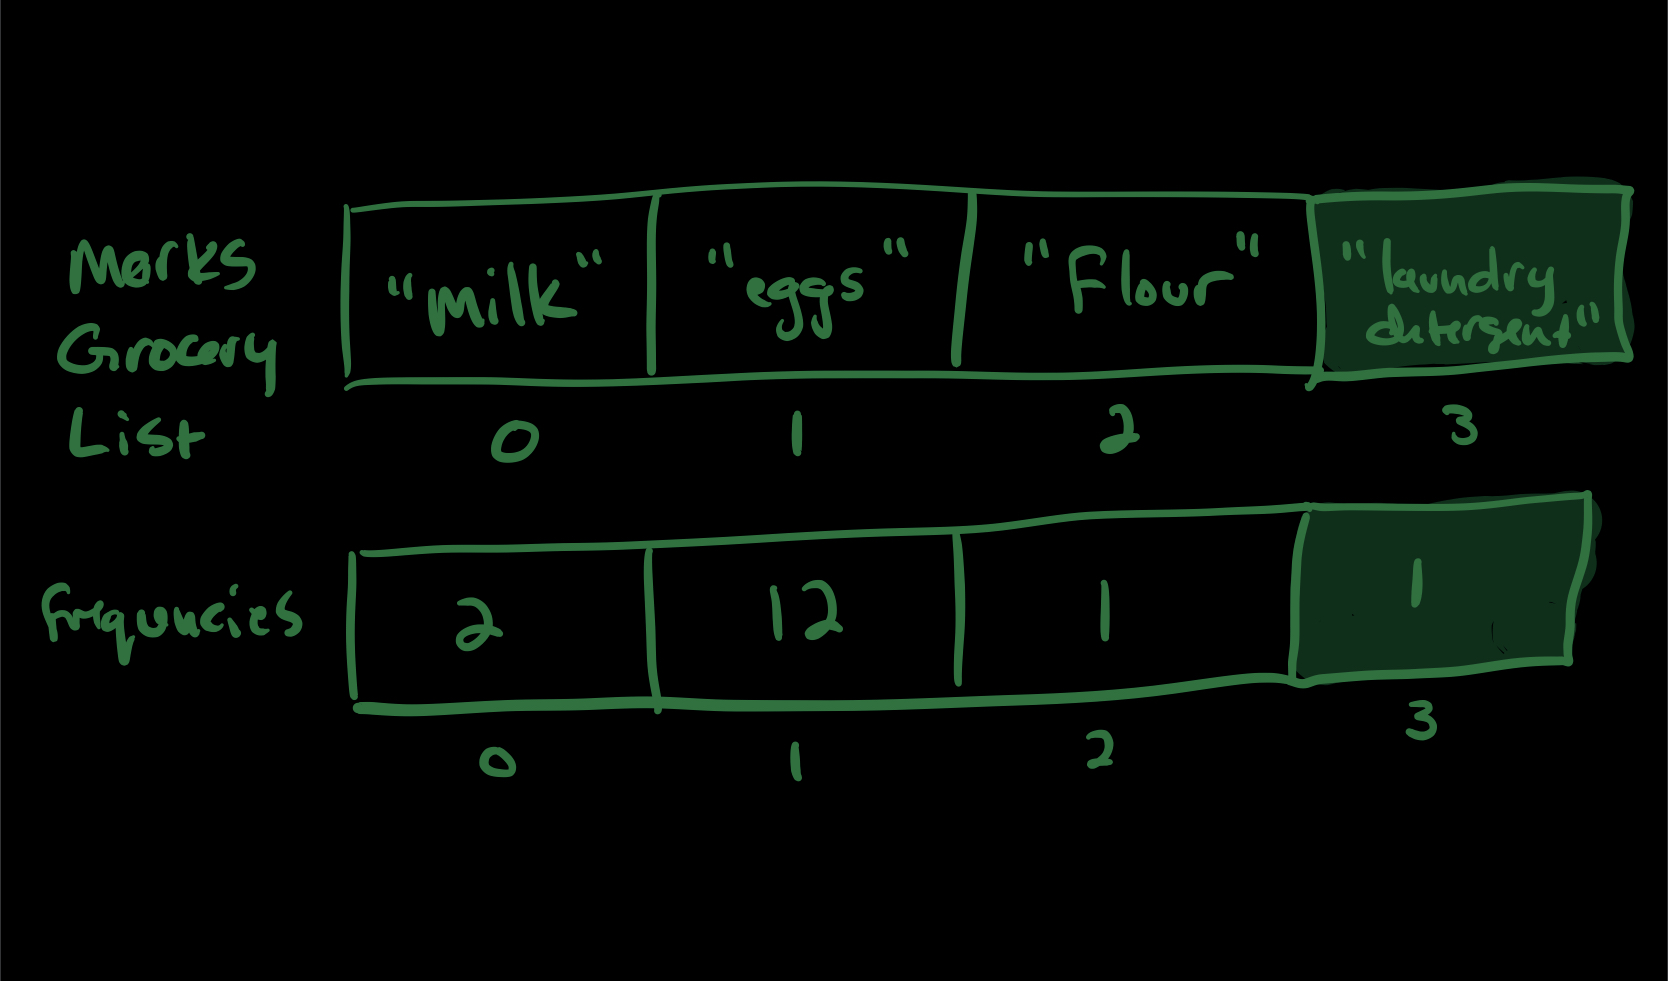 Marks
Grocery
List
"milk" "eggs" "Flour" "laundry
detergent"
0 1 2 3
frequncies 2 12 1 1
0 1 2 3